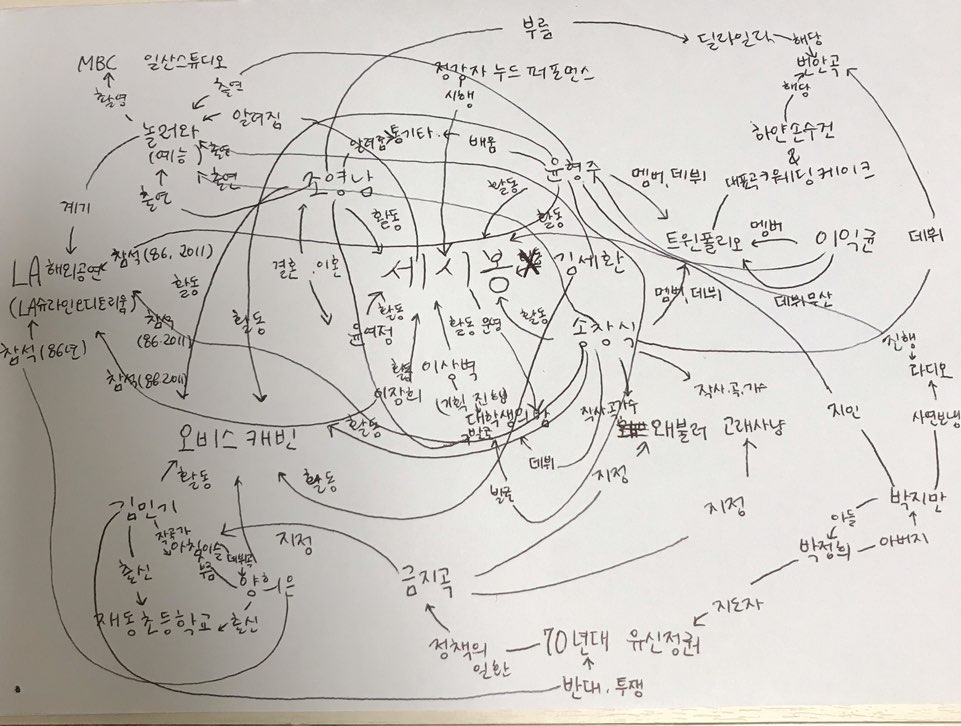 부름
MBC 일산스튜디오
딜라일라
해당
번안곡
정강자 누드 퍼포먼스
시행
출연
촬영
해당
알려짐
놀러와
(예능)
출연
출연
출연
알려줌
통기타
배움
하얀손수건
&
대표곡
웨딩케이크
조영남
윤형주
멤버, 데뷔
활동
활동
활동
계기
멤버
이익균
트윈폴리오
데뷔
데뷔무산
LA 해외공연
참석(86, 2011)
결혼. 이혼
세시봉
김세환
(LA슈라인오디토리움)
활동
멤버, 데뷔
참석
(86.2011)
활동
윤여정
활동
활동
운영
활동
송창식
참석(86년)
진행
라디오
참석(86.2011)
활동
이장희
이상벽
(기획, 진행)
대학생의밤
작사.곡.가수
작사.곡.가수
사연보냄
지인
오비스캐빈
활동
발굴
왜불러
고래사냥
데뷔
지정
발굴
활동
활동
김민기
작곡가
아침이슬
데뷔곡
부름
지정
지정
박지만
아들
박정희
아버지
출신
양희은
금지곡
재동초등학교
출신
지도자
정책의
일환
70년대 유신정권
반대.투쟁